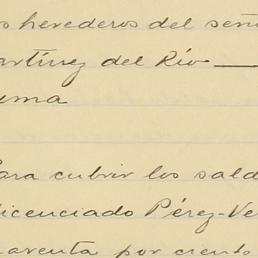 os herederos del seño
artínez del Río
uma
Para cubrir los sald
licenciado Pérez-Ve
uarenta por ciento